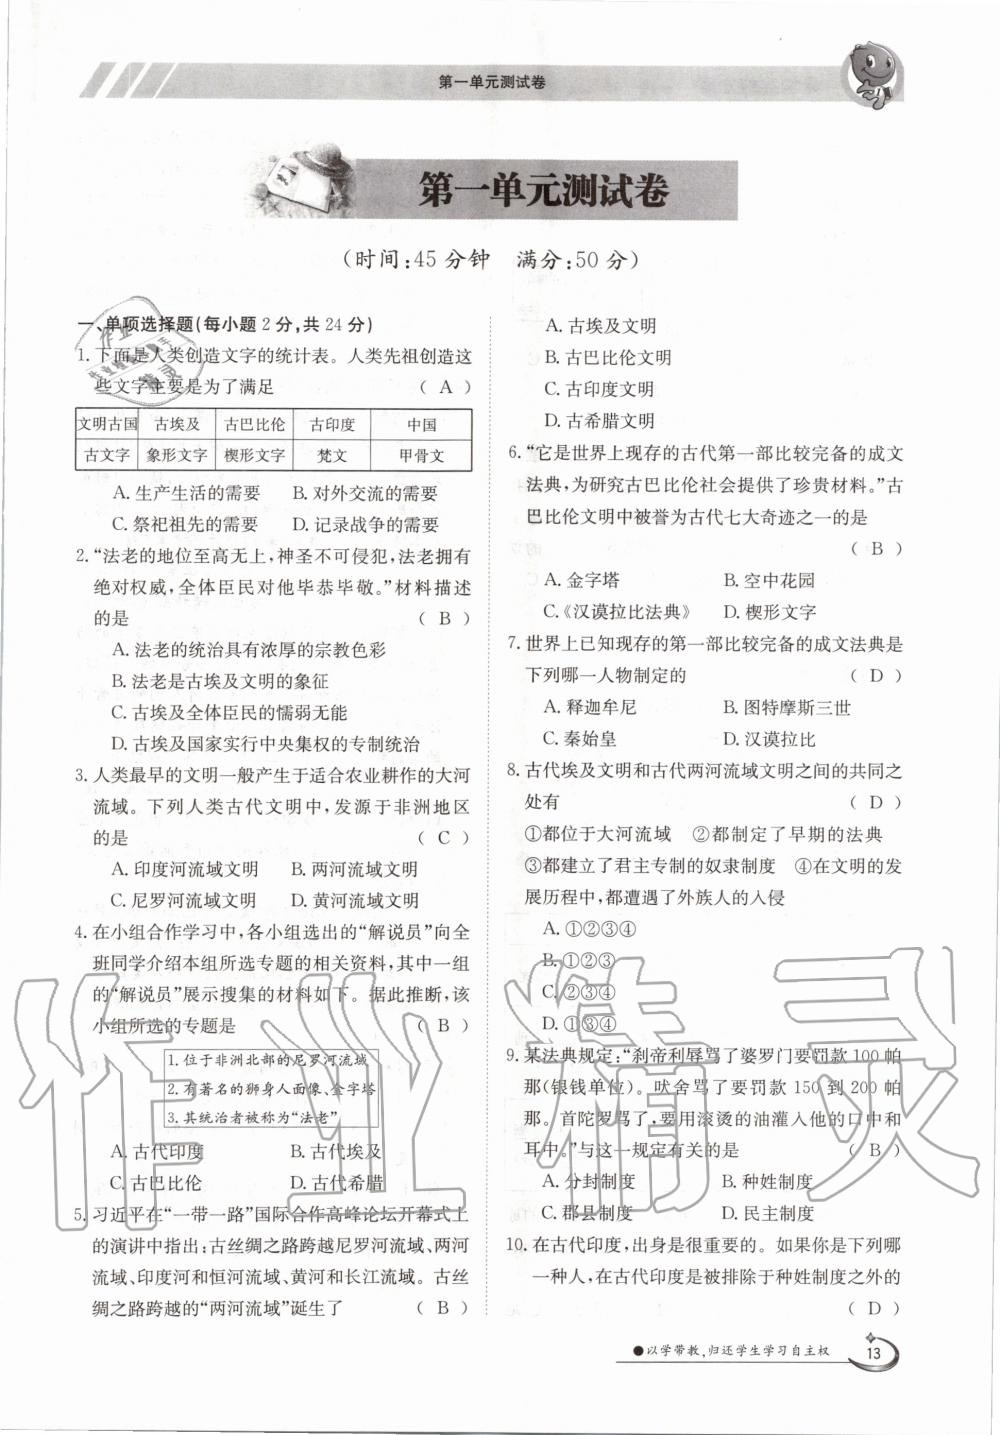 第一单元测试卷
第一单元测试卷
(时间:45分钟　满分:50分)
一、单项选择题(每小题2分,共24分)
1. 下面是人类创造文字的统计表。人类先祖创造这
些文字主要是为了满足 ( A )
文明古国 古埃及 古巴比伦 古印度 中国
古文字 象形文字 楔形文字 梵文 甲骨文
A. 生产生活的需要 B. 对外交流的需要
C. 祭祀祖先的需要 D. 记录战争的需要
2. “法老的地位至高无上,神圣不可侵犯,法老拥有
绝对权威,全体臣民对他毕恭毕敬。”材料描述
的是 ( B )
A. 法老的统治具有浓厚的宗教色彩
B. 法老是古埃及文明的象征
C. 古埃及全体臣民的懦弱无能
D. 古埃及国家实行中央集权的专制统治
3. 人类最早的文明一般产生于适合农业耕作的大河
流域。下列人类古代文明中,发源于非洲地区
的是 ( C )
A. 印度河流域文明 B. 两河流域文明
C. 尼罗河流域文明 D. 黄河流域文明
4. 在小组合作学习中,各小组选出的“解说员”向全
班同学介绍本组所选专题的相关资料,其中一组
的“解说员”展示搜集的材料如下。据此推断,该
小组所选的专题是 ( B )
1. 位于非洲北部的尼罗河流域
2. 有著名的狮身人面像、金字塔
3. 其统治者被称为“法老”
A. 古代印度 B. 古代埃及
C. 古巴比伦 D. 古代希腊
5. 习近平在“一带一路”国际合作高峰论坛开幕式上
的演讲中指出:古丝绸之路跨越尼罗河流域、两河
流域、印度河和恒河流域、黄河和长江流域。古丝
绸之路跨越的“两河流域”诞生了 ( B )
A. 古埃及文明
B. 古巴比伦文明
C. 古印度文明
D. 古希腊文明
6. “它是世界上现存的古代第一部比较完备的成文
法典,为研究古巴比伦社会提供了珍贵材料。”古
巴比伦文明中被誉为古代七大奇迹之一的是
( B )
A. 金字塔 B. 空中花园
C.《汉谟拉比法典》 D. 楔形文字
7. 世界上已知现存的第一部比较完备的成文法典是
下列哪一人物制定的 ( D )
A. 释迦牟尼 B. 图特摩斯三世
C. 秦始皇 D. 汉谟拉比
8. 古代埃及文明和古代两河流域文明之间的共同之
处有 ( D )
①都位于大河流域　②都制定了早期的法典
③都建立了君主专制的奴隶制度　④在文明的发
展历程中,都遭遇了外族人的入侵
A. ①②③④
B. ①②③
C. ②③④
D. ①③④
9. 某法典规定:“刹帝利辱骂了婆罗门要罚款100帕
那(银钱单位)。吠舍骂了要罚款150到200帕
那。首陀罗骂了,要用滚烫的油灌入他的口中和
耳中。”与这一规定有关的是 ( B )
A. 分封制度 B. 种姓制度
C. 郡县制度 D. 民主制度
10. 在古代印度,出身是很重要的。如果你是下列哪
一种人,在古代印度是被排除于种姓制度之外的
( D )
●以学带教,归还学生学习自主权
13
作业精灵